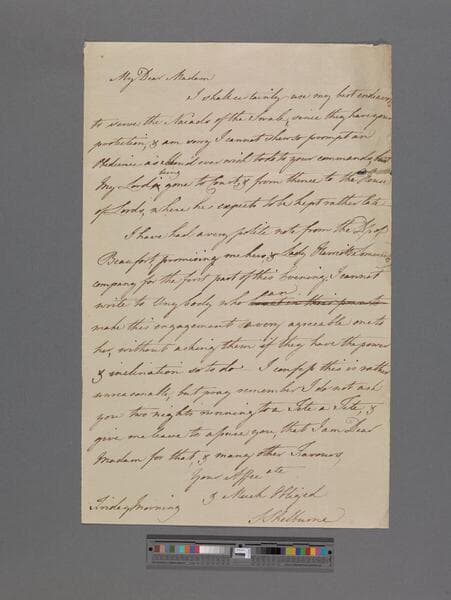 My Dear Madam
I shall certainly use my best endeavors
to serve the Naiads of the Swale, since they have your
protection, & am sorry I cannot shew so prompt an
Obedience as I shou'd ever wish to do to your commands,
My Lord being gone to Court, & from thence to the House
of Lords, where he expects to be kept rather late
I have had a very polite note from the Ds. of
Beaufort, promising me hers, & Lady Harriet Somerset's
company for the first part of this Evening, I cannot
write to any body who can
make this engagement a very agreeable one to
her, without asking them if they have the power
& inclination so to do I confess this is rather
unreasonable, but pray remember I do not ask
you two nights running to a Tete a Tete, &
give me leave to assure you, that I am Dear
Madam for that, & many other Favours,
Your Affec ate
& Much Obliged
S Shelburne
Friday Morning